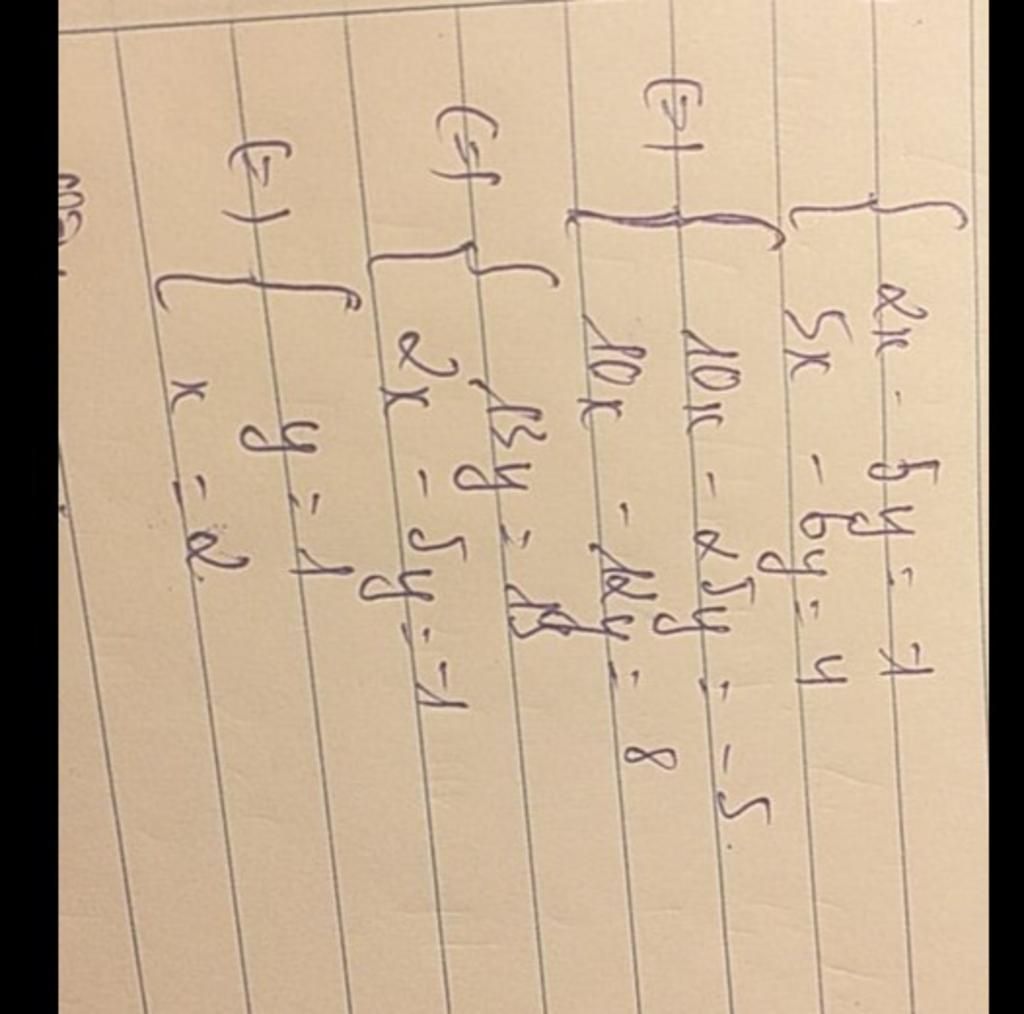 { 2x - 5y = -1
5x - 6y = 4
(=) { 10x - 25y = -5
10x - 12y = 8
(=) { 13y = 13
2x - 5y = -1
(=) { y = 1
x = 2